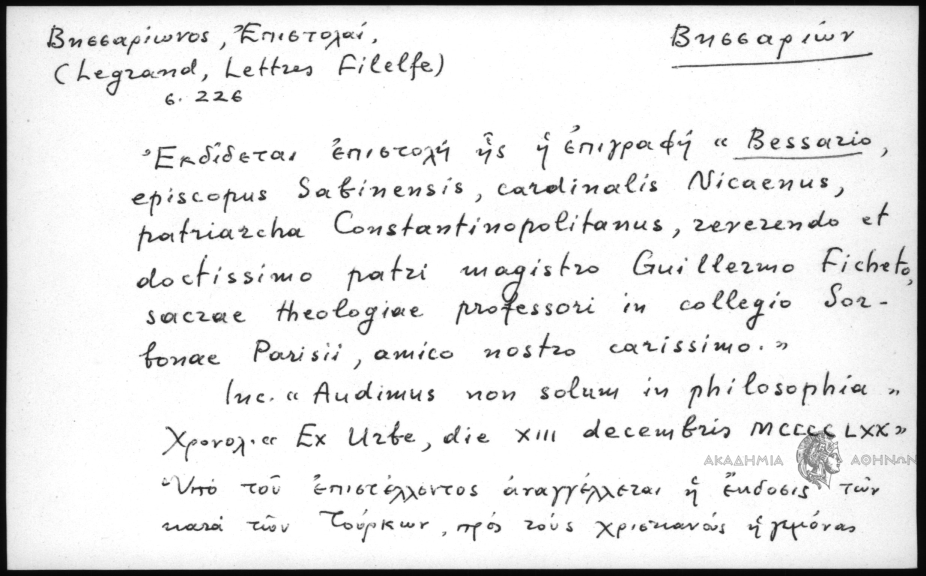 Βησσαρίωνος, Ἐπιστολαί,
Βησσαρίων
(Legrand, Lettres Filelfe)
σ. 226
Ἐκδίδεται ἐπιστολή ἧς ἡ ἐπιγραφή « Bessario,
episcopus Sabinensis, cardinalis Nicaenus,
patriarcha Constantinopolitanus, reverendo et
doctissimo patri magistro Guillermo Ficheto,
sacrae theologiae professori in collegio Sor-
bonae Parisii, amico nostro carissimo. »
Inc. « Audimus non solum in philosophia »
Χρονολ. « Ex Urbe, die XIII decembris MCCCCLXX »
ΑΚΑΔΗΜΙΑ ΑΘΗΝΩΝ
Ὑπό τοῦ ἐπιστέλλοντος ἀναγγέλλεται ἡ ἔκδοσις τῶν
κατά τῶν Τούρκων, πρός τούς χριστιανούς ἡγεμόνας